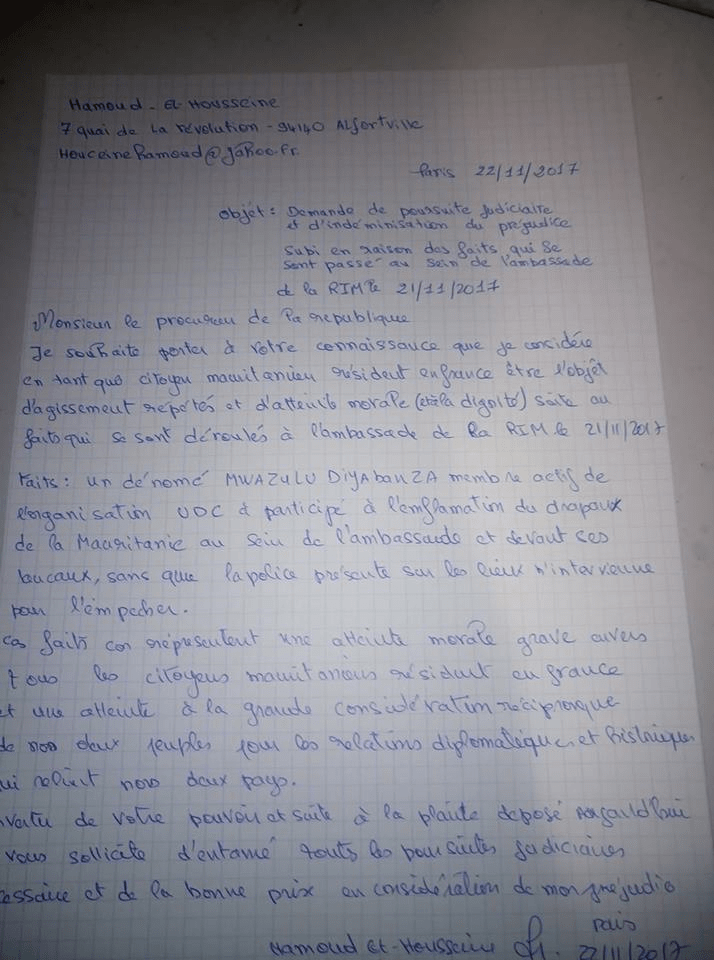 Hamoud - El-Housseine
7 quai de la révolution - 94140 Alfortville
Houceinehamoud@yahoo.fr.
Paris 22/11/2017
Objet : Demande de poursuite judiciaire
et d'indéminisation du préjudice
subi en raison des faits qui se
sont passé au sein de l'ambassade
de la RIM le 21/11/2017
Monsieur le procureur de la republique
Je souhaite porter à votre connaissance que je considére
en tant que citoyen mauritanien résident en france être l'objêt
d'agissement répétés et d'atteinte morale (et à la dignité) suite au
faits qui se sont déroulés à l'ambassade de la RIM le 21/11/2017
Faits : un dénomé MWAZULU DiYABANZA membre actif de
l'organisation UDC à participé à l'enflamation du drapaux
de la Mauritanie au sein de l'ambassade et devant ses
laucaux, sans que la police présente sur les lieux n'intervienne
pour l'empecher.
ces faits représentent une atteinte morale grave envers
tous les citoyens mauritaniens résident en france
et une atteinte à la grande considération réciproque
de nos deux peuples pour les relations diplomatiques et historiques
ui relient nos deux pays.
vertu de votre pouvoir et suite à la plainte deposé aujourd'hui
vous sollicite d'entamé touts les poursuites judiciaires
essaire et de la bonne prise en considération de mon prejudic
Hamoud El-Housseine
Paris
22/11/2017